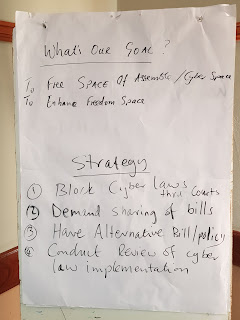 What's Our GOAL?
To Free SPACE Of Assemble/Cyber Space
To Enhance Freedom Space
Strategy
① Block Cyber laws
thru Courts
② Demand Sharing of bills
③ Have Alternative Bill/policy
④ Conduct Review of cyber
law implementation